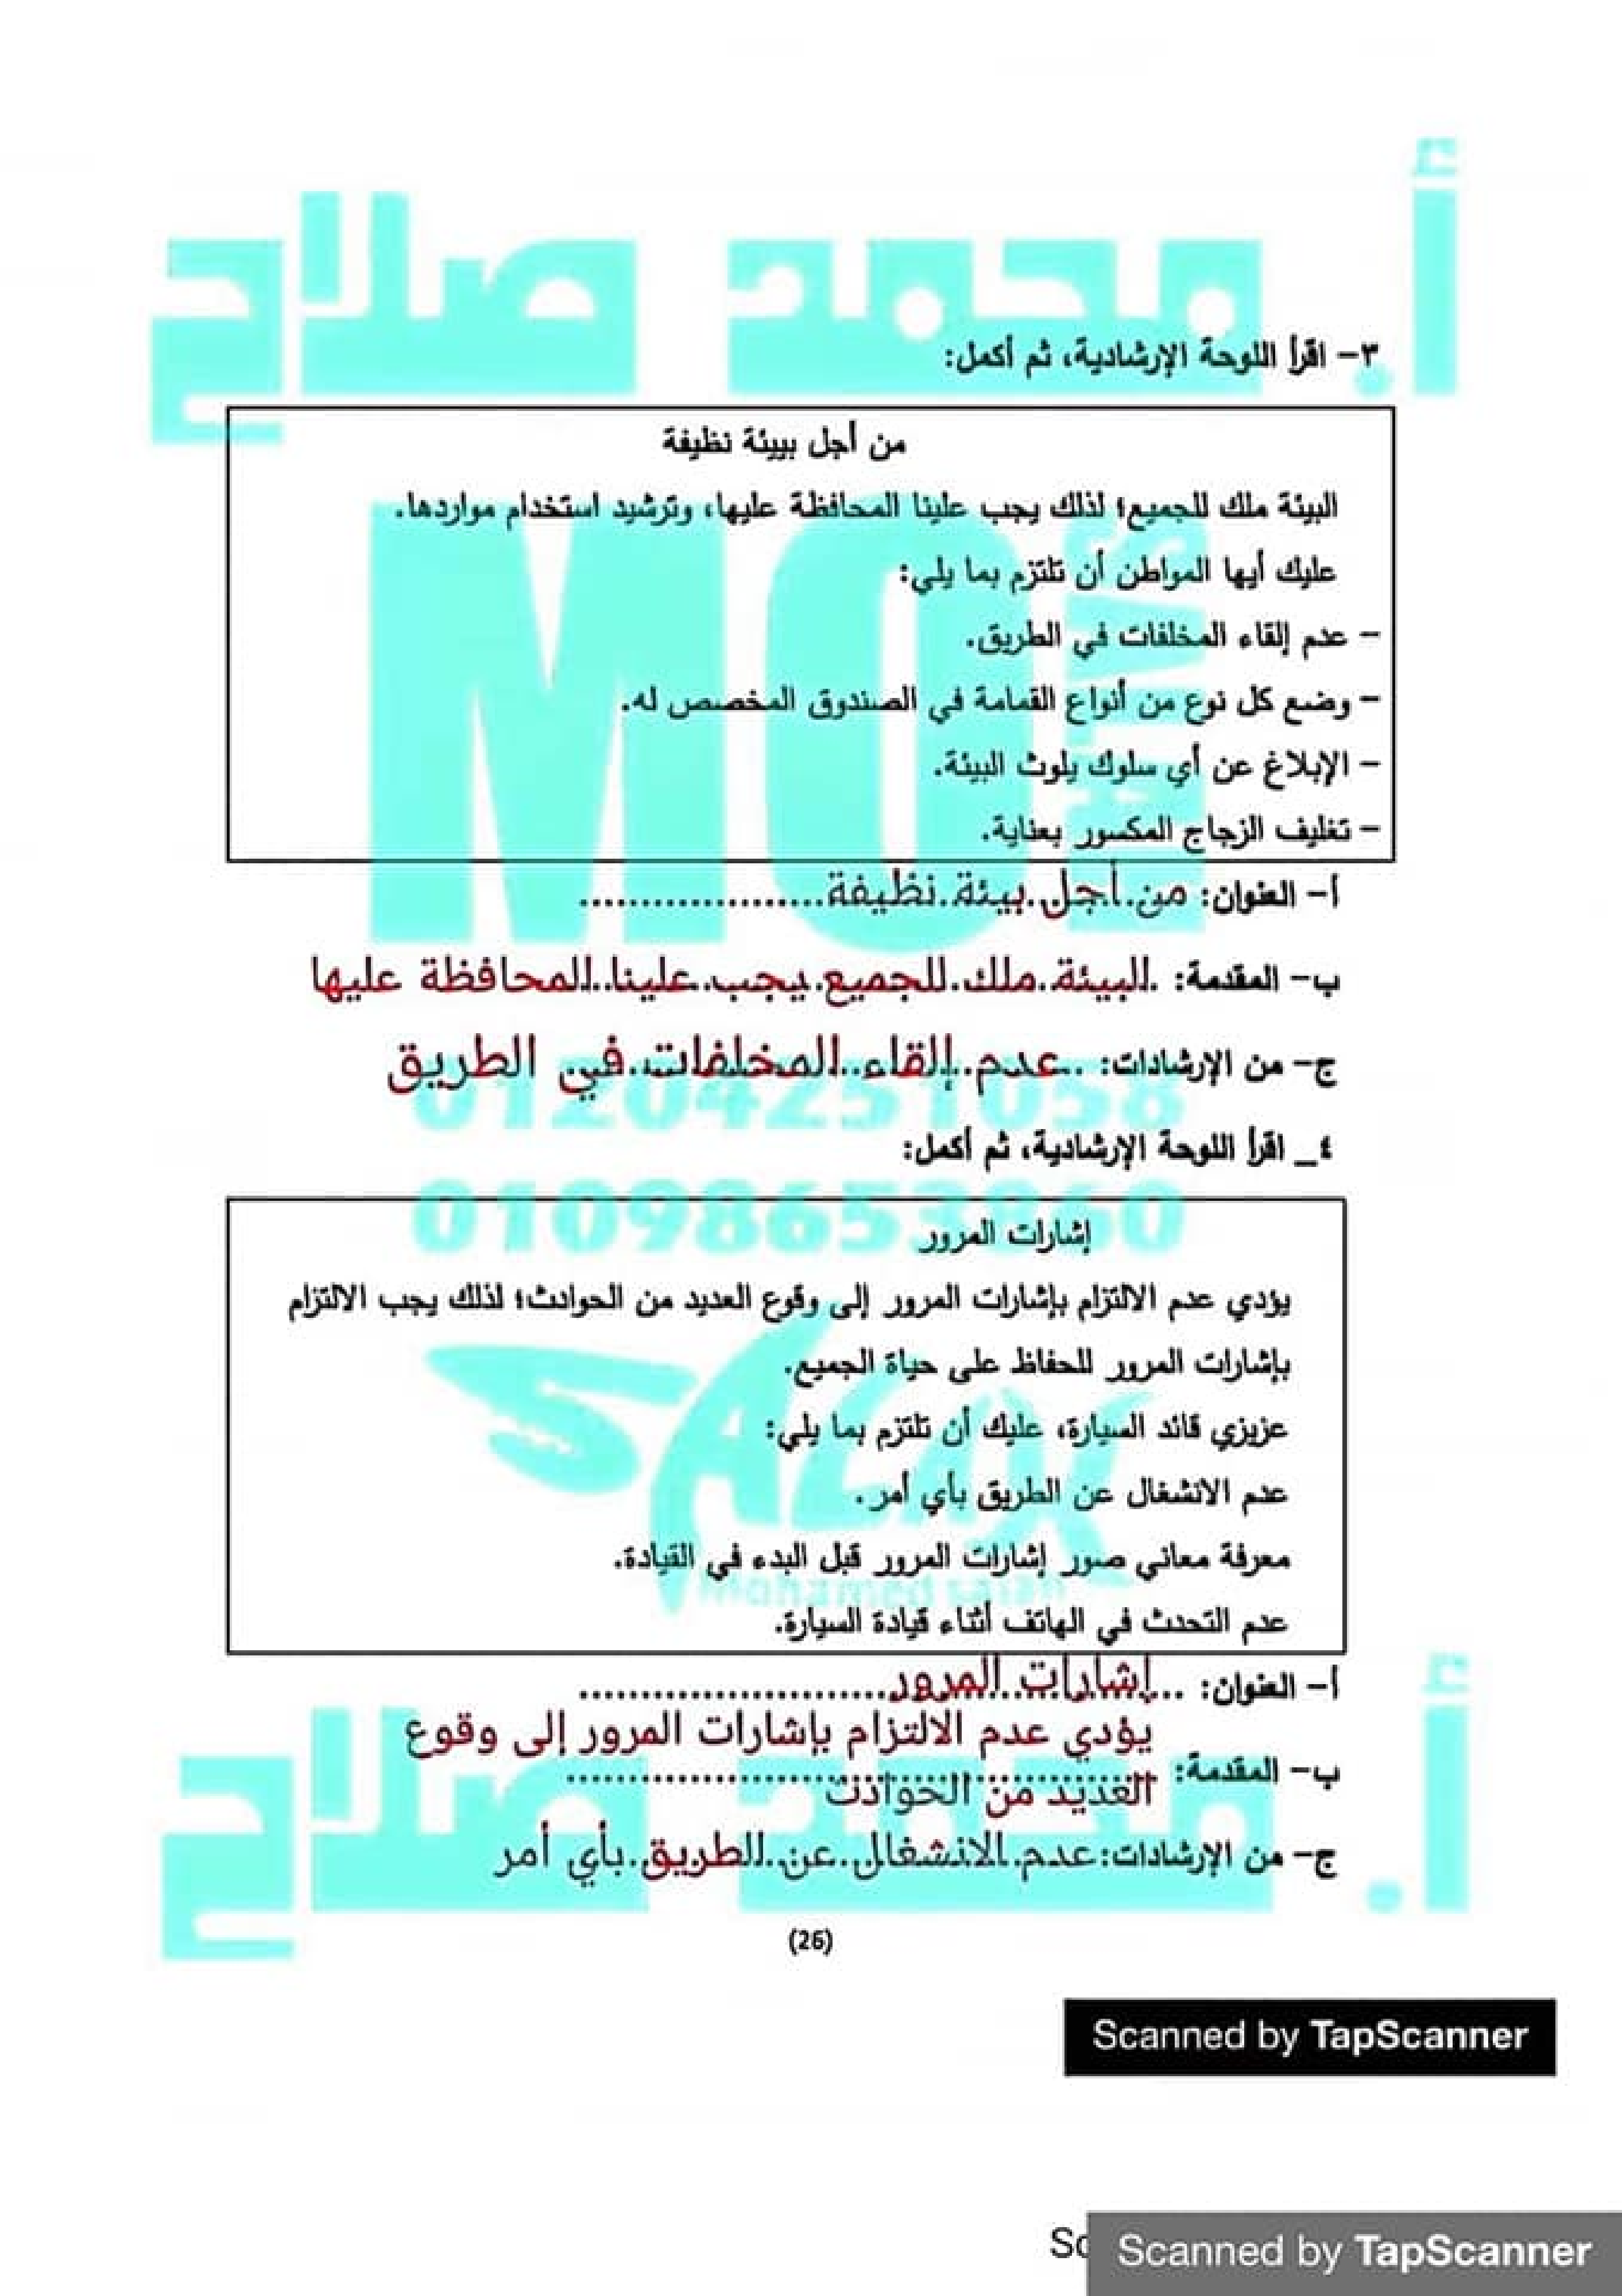 أ. محمد صلاح
٣- اقرأ اللوحة الإرشادية، ثم أكمل:
من أجل بيئة نظيفة
البيئة ملك للجميع؛ لذلك يجب علينا المحافظة عليها، وترشيد استخدام مواردها.
عليك أيها المواطن أن تلتزم بما يلي:
- عدم إلقاء المخلفات في الطريق.
- وضع كل نوع من أنواع القمامة في الصندوق المخصص له.
- الإبلاغ عن أي سلوك يلوث البيئة.
- تغليف الزجاج المكسور بعناية.
MO
أ- العنوان: من أجل بيئة نظيفة....................
ب- المقدمة: البيئة ملك للجميع يجب علينا المحافظة عليها
ج- من الإرشادات: عدم إلقاء المخلفات في الطريق
01204251058
٤_ اقرأ اللوحة الإرشادية، ثم أكمل:
إشارات المرور
يؤدي عدم الالتزام بإشارات المرور إلى وقوع العديد من الحوادث؛ لذلك يجب الالتزام
بإشارات المرور للحفاظ على حياة الجميع.
عزيزي قائد السيارة، عليك أن تلتزم بما يلي:
عدم الانشغال عن الطريق بأي أمر.
معرفة معاني صور إشارات المرور قبل البدء في القيادة.
عدم التحدث في الهاتف أثناء قيادة السيارة.
SALAH
Mohamed salah
أ- العنوان: إشارات المرور
ب- المقدمة: يؤدي عدم الالتزام بإشارات المرور إلى وقوع
العديد من الحوادث
ج- من الإرشادات: عدم الانشغال عن الطريق بأي أمر
أ. محمد صلاح
(26)
Scanned by TapScanner
Sc
Scanned by TapScanner